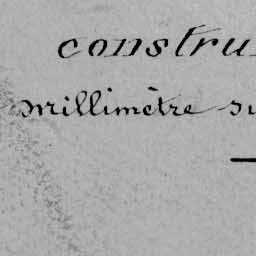 constru
millimètre su